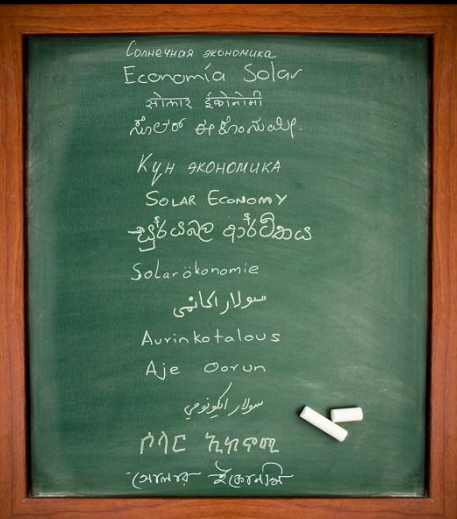 Солнечная экономика
Economía Solar
सोलार ईकोनोमी
ಸೋಲಾರ್ ಈಕೊನಮಿ.
Күн экономика
SOLAR ECONOMY
සූර්යබල ආර්ථිකය
Solarökonomie
سولار اکانمی
Aurinkotalous
Aje Oorun
سولار ایکونومي
ሶላር ኢኮኖሚ
সোলার ইকোনমি